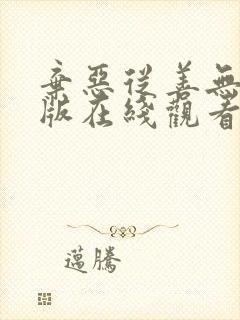 棄惡從善無
版在綫觀看
邁騰